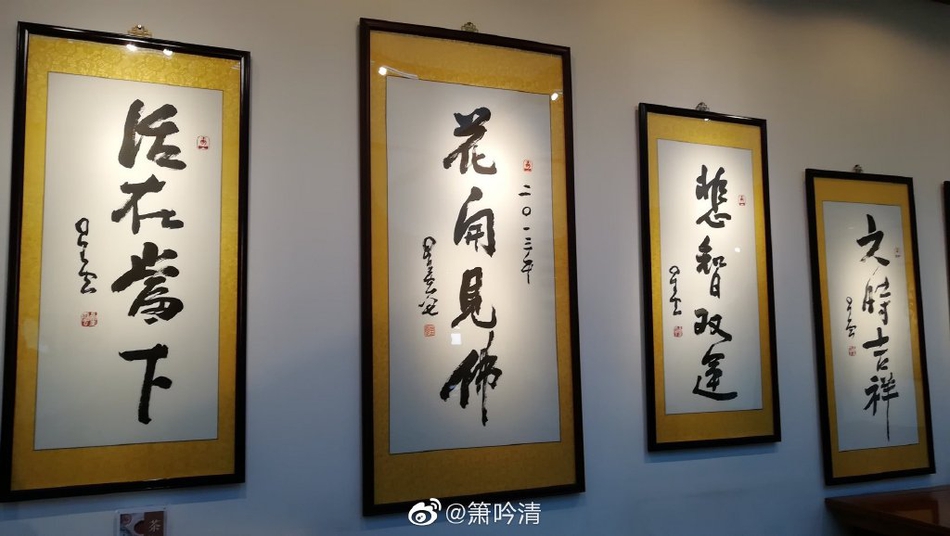 活在當下
星雲
花開見佛
二〇一三年
星雲
悲智双運
星雲
六時吉祥
星雲
茶
@箫吟清